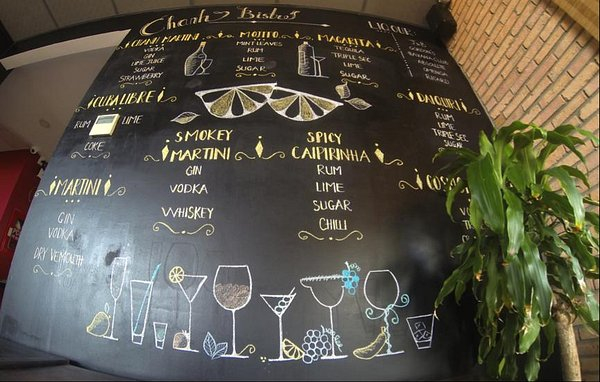 Chanh's Bistro
CHANH MARTINI
VODKA
GIN
LIME JUICE
SUGAR
STRAWBERRY
MOJITO
MINT LEAVES
RUM
LIME
SUGAR
MAGARITA
TEQUILA
TRIPLE SEC
LIME
SUGAR
LIQOUR
CUBA LIBRE
RUM
LIME
COKE
SMOKEY
MARTINI
GIN
VODKA
WHISKEY
SPICY
CAIPIRINHA
RUM
LIME
SUGAR
CHILLI
DAIQUIRI
RUM
LIME
TRIPLE SEC
SUGAR
MARTINI
GIN
VODKA
DRY VERMOUTH